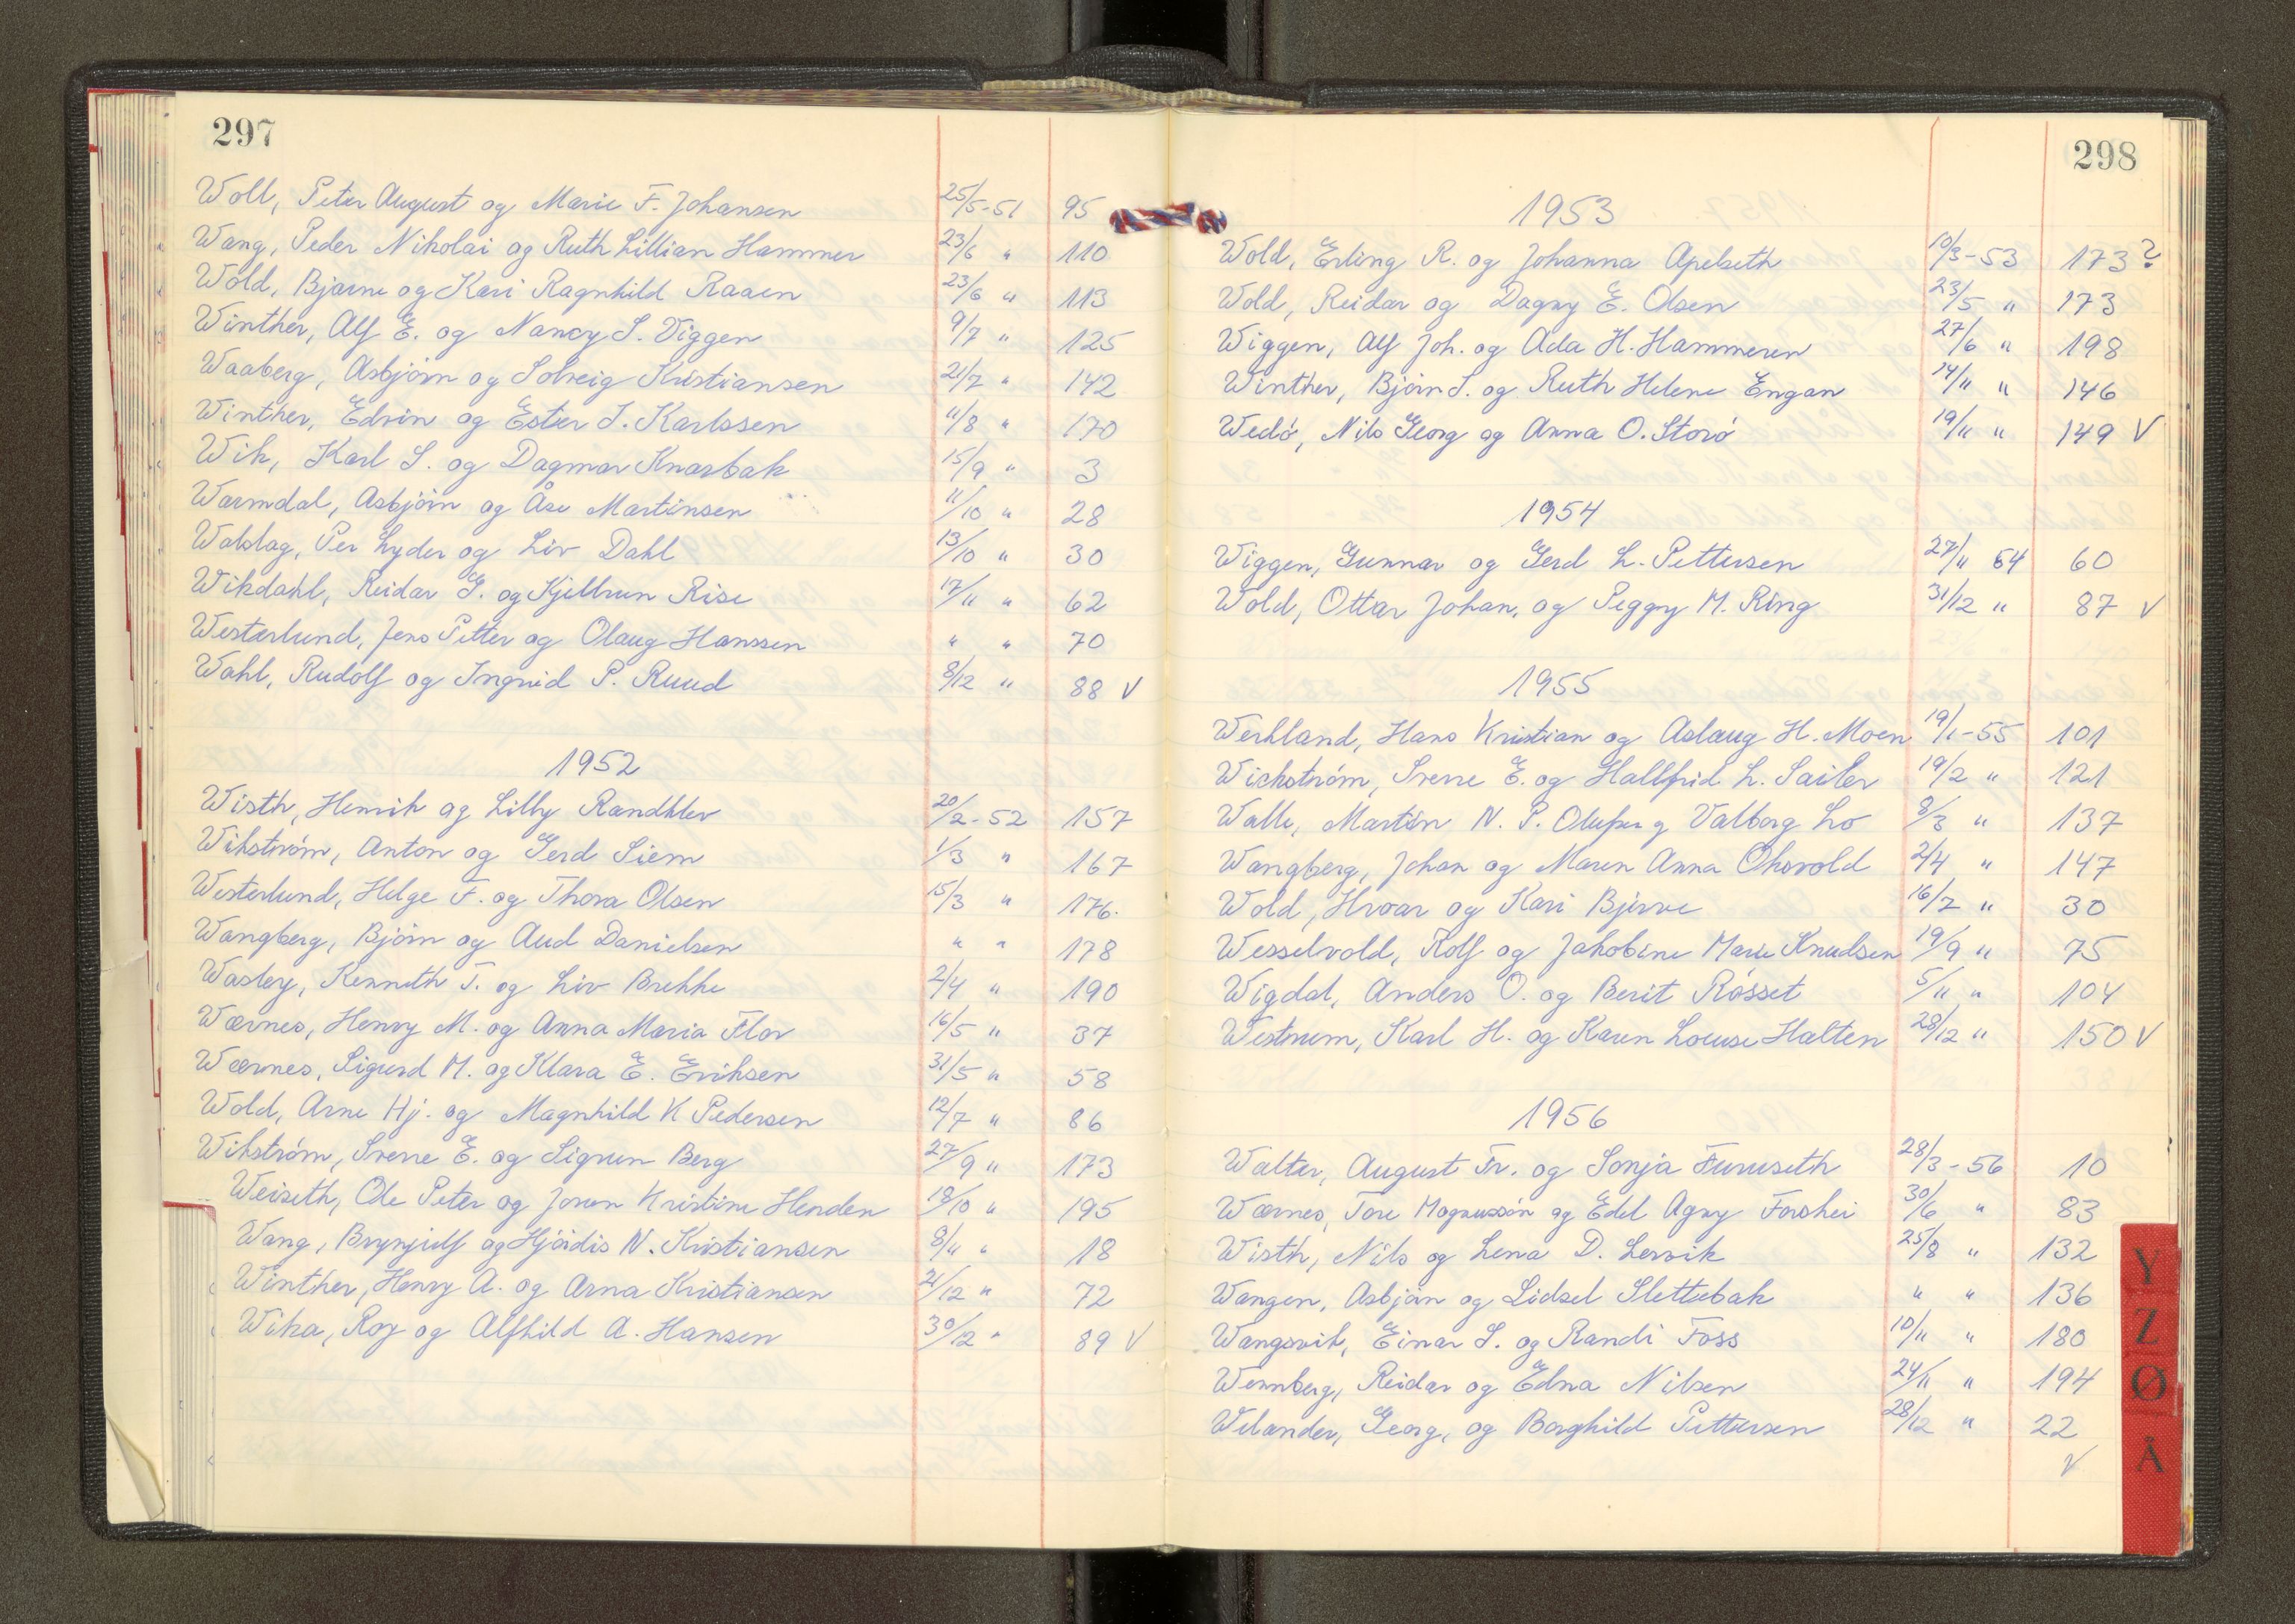 297
Woll, Peter August og Marie F. Johansen 25/5-51 95
Wang, Peder Nikolai og Ruth Lillian Hammer 23/6 " 110
Wold, Bjarne og Kari Ragnhild Raaen 23/6 " 113
Winther, Alf E. og Nancy S. Viggen 9/7 " 125
Waaberg, Asbjörn og Solveig Kristiansen 21/7 " 142
Winther, Edvin og Ester J. Karlssen 11/8 " 170
Wik, Karl S. og Dagmar Knarbak 15/9 " 3
Warmdal, Asbjörn og Åse Martinsen 11/10 " 28
Walslag, Per Lyder og Liv Dahl 13/10 " 30
Wikdahl, Reidar G. og Kjellrun Rise 17/11 " 62
Westerlund, Jens Petter og Olaug Hanssen " " 70
Wahl, Rudolf og Ingrid P. Ruud 8/12 " 88 V
1952
Wisth, Henrik og Lilly Randklev 20/2-52 157
Wikström, Anton og Gerd Siem 1/3 " 167
Westerlund, Helge F. og Thora Olsen 15/3 " 176.
Wangberg, Björn og Aud Danielsen " " 178
Wasley, Kenneth T. og Liv Brekke 2/4 " 190
Wærnes, Henry M. og Anna Maria Flor 16/5 " 37
Wærnes, Sigurd M. og Klara E. Eriksen 31/5 " 58
Wold, Arne Hj. og Magnhild K Pedersen 12/7 " 86
Wikström, Sverre E. og Sigrun Berg 27/9 " 173
Weiseth, Ole Peter og Jorun Kristine Henden 18/10 " 195
Wang, Brynjulf og Hjördis N. Kristiansen 8/11 " 18
Winther, Henry A. og Arna Kristiansen 21/12 " 72
Wika, Roy og Alfhild A. Hansen 30/12 " 89 V
298
1953
Wold, Erling R. og Johanna Apelseth 10/3-53 173?
Wold, Reidar og Dagny E. Olsen 23/5 " 173
Wiggen, Alf Joh. og Ada H. Hammeren 27/6 " 198
Winther, Björn S. og Ruth Helene Engan 14/11 " 146
Wedö, Nils Georg og Anna O. Storö 19/11 " 149 V
1954
Wiggen, Gunnar og Gerd L. Pettersen 27/11 54 60
Wold, Ottar Johan, og Peggy M. Ring 31/12 " 87 V
1955
Werkland, Hans Kristian og Aslaug H. Moen 19/1-55 101
Wickström, Sverre E. og Hallfrid L. Sailer 19/2 " 121
Walle, Martin N. P. og Valborg Lo 8/3 " 137
Wangberg, Johan og Maren Anna Oksvold 2/4 " 147
Wold, Hroar og Kari Bjerve 16/7 " 30
Wesselvold, Rolf og Jakobine Marie Knudsen 19/9 " 75
Wigdal, Anders O. og Berit Rösset 5/11 " 104
Westrum, Karl H. og Karen Louise Halten 28/12 " 150 V
1956
Walter, August Fr. og Sonja Furuseth 28/3-56 10
Wærnes, Tore Magnussön og Edel Agny Forshei 30/6 " 83
Wisth, Nils og Lena D. Lervik 25/8 " 132
Wangen, Asbjörn og Lidsel Slettebak " " 136
Wangsvik, Einar S. og Randi Foss 10/11 " 180
Wennberg, Reidar og Edna Nilsen 24/11 " 194
Welander, Georg, og Borghild Pettersen 28/12 " 22
V
Y
Z
Ø
Å